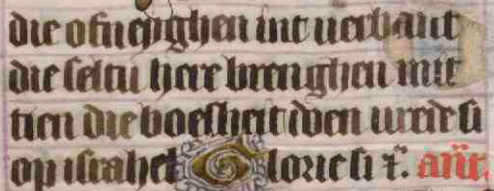 die ofneyghen int uerbant
die seltu here brenghen mit
tien die boesheit doen urede si
op israhel Glorie si r̄. an̄t.